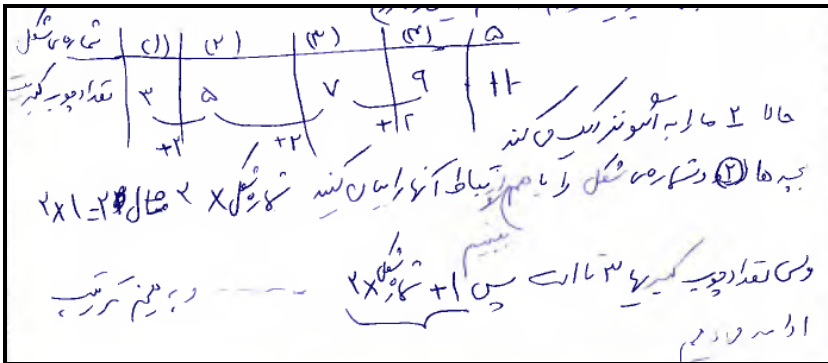 شماره‌ی شکل (۱) (۲) (۳) (۴) ۵
تعداد چوب کبریت ۳ ۵ ۷ ۹ ۱۱
+۲ +۲ +۲
حالا ۲ ما را به الگو نزدیک می‌کند
بچه ها ۲ و شماره‌ی شکل را با هم ببینیم ارتباط آنها را بیان کنید شماره شکل × ۲ مثال ۲=۱×۲
ولی تعداد چوب کبریتها ۳ تا است پس ۱ + شماره شکل × ۲ ------ و به همین ترتیب
ادامه می‌دهیم